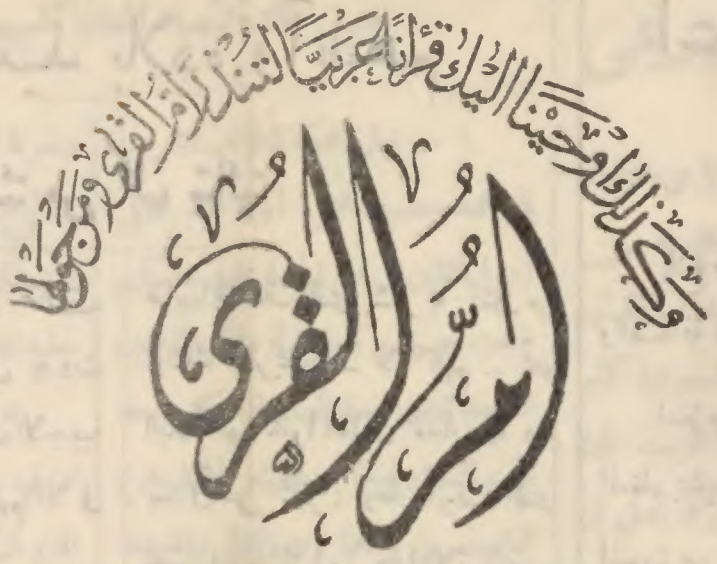 وَكَذَلِكَ أَوْحَيْنَا إِلَيْكَ قُرْآنًا عَرَبِيًّا لِتُنْذِرَ أُمَّ الْقُرَى وَمَنْ حَوْلَهَا
أُمُّ الْقُرَى